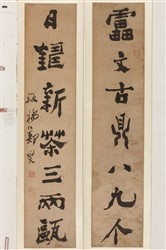 靁文古鼎八九个
日鑄新茶三兩甌
板橋鄭燮